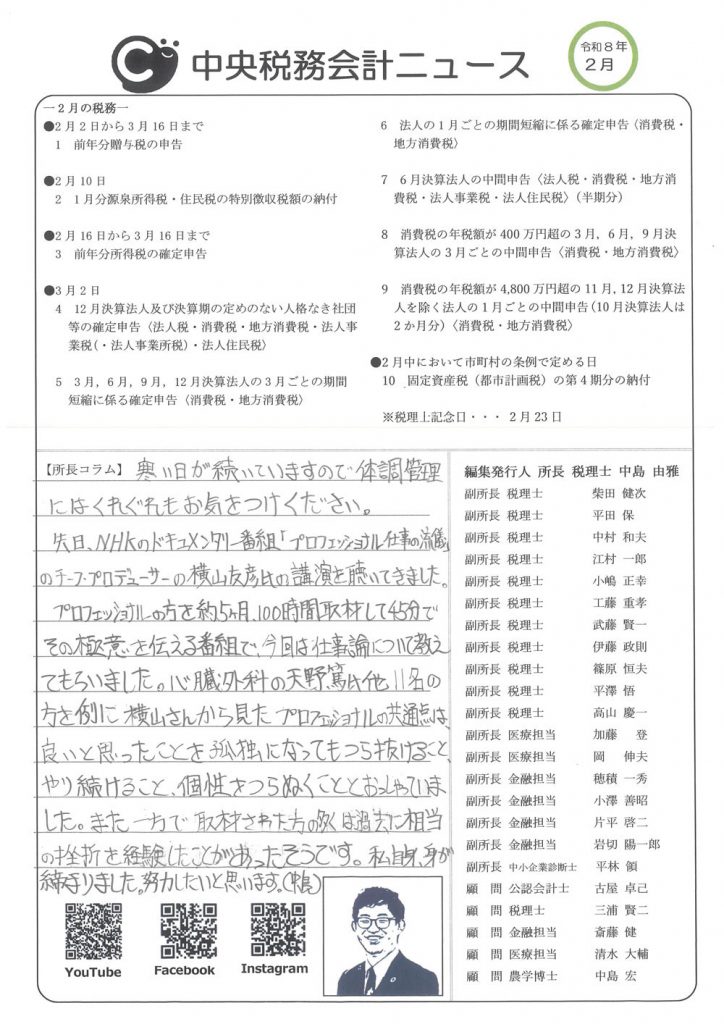 中央税務会計ニュース
令和8年
2月
―2月の税務―
●2月2日から3月16日まで
1 前年分贈与税の申告
●2月10日
2 1月分源泉所得税・住民税の特別徴収税額の納付
●2月16日から3月16日まで
3 前年分所得税の確定申告
●3月2日
4 12月決算法人及び決算期の定めのない人格なき社団
等の確定申告〈法人税・消費税・地方消費税・法人事
業税(・法人事業所税)・法人住民税〉
5 3月，6月，9月，12月決算法人の3月ごとの期間
短縮に係る確定申告〈消費税・地方消費税〉
6 法人の1月ごとの期間短縮に係る確定申告〈消費税・
地方消費税〉
7 6月決算法人の中間申告〈法人税・消費税・地方消
費税・法人事業税・法人住民税〉(半期分)
8 消費税の年税額が400万円超の3月，6月，9月決
算法人の3月ごとの中間申告〈消費税・地方消費税〉
9 消費税の年税額が4,800万円超の11月，12月決算法
人を除く法人の1月ごとの中間申告(10月決算法人は
2か月分)〈消費税・地方消費税〉
●2月中において市町村の条例で定める日
10 固定資産税（都市計画税）の第4期分の納付
※税理士記念日・・・ 2月23日
【所長コラム】 寒い日が続いていますので体調管理
にはくれぐれもお気をつけください。
先日、NHKのドキュメンタリー番組「プロフェッショナル仕事の流儀」
のチーフ・プロデューサーの横山友彦氏の講演を聴いてきました。
プロフェッショナルの方を約5ヶ月、100時間取材して45分で
その極意を伝える番組で、今回は仕事論について教え
てもらいました。心臓外科の天野篤氏他11名の
方を例に横山さんから見たプロフェッショナルの共通点は、
良いと思ったことを孤独になってもつら抜けること、
やり続けること、個性をつらぬくこととおっしゃっていま
した。また一方で取材された方の多くは過去に相当
の挫折を経験したことがあったそうです。私自身、身が
締まりました。努力したいと思います。(中島)
YouTube
Facebook
Instagram
編集発行人 所長 税理士 中島 由雅
副所長 税理士 柴田 健次
副所長 税理士 平田 保
副所長 税理士 中村 和夫
副所長 税理士 江村 一郎
副所長 税理士 小嶋 正幸
副所長 税理士 工藤 重孝
副所長 税理士 武藤 賢一
副所長 税理士 伊藤 政則
副所長 税理士 篠原 恒夫
副所長 税理士 平澤 悟
副所長 税理士 高山 慶一
副所長 医療担当 加藤 登
副所長 医療担当 岡 伸夫
副所長 金融担当 穂積 一秀
副所長 金融担当 小澤 善昭
副所長 金融担当 片平 啓二
副所長 金融担当 岩切 陽一郎
副所長 中小企業診断士 平林 領
顧 問 公認会計士 古屋 卓己
顧 問 税理士 三浦 賢二
顧 問 金融担当 斎藤 健
顧 問 医療担当 清水 大輔
顧 問 農学博士 中島 宏